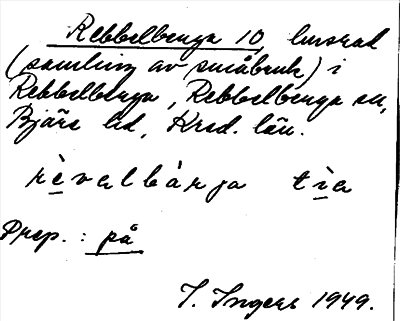 Rebbelberga 10, husrad
(samling av småbruk) i
Rebbelberga, Rebbelberga sn,
Bjäre hd, Krsd. län.
rèvalbárja tìa
Prep. : på
I. Ingers 1949.